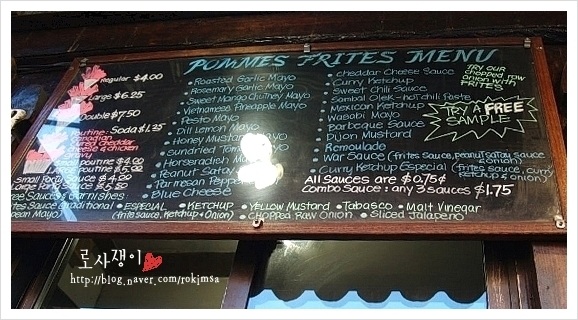 POMMES FRITES MENU
Regular $4.00
Large $6.25
Double $7.50
Poutine: Soda $1.25
Canadian
cheddar
cheese & chicken
gravy
Small poutine $4.00
Large poutine $5.00
Roasted Garlic Mayo
Rosemary Garlic Mayo
Sweet Mango Chutney Mayo
Vietnamese Pineapple Mayo
Pesto Mayo
Dill Lemon Mayo
Honey Mustard Mayo
Sundried Tomato Mayo
Horseradish Mayo
Peanut Satay
Parmesan Peppercorn
Blue Cheese
Cheddar Cheese Sauce
Curry Ketchup
Sweet Chili Sauce
Sambal Olek - hot chili Paste
Mexican Ketchup
Wasabi Mayo
Barbeque Sauce
Dijon Mustard
Remoulade
War Sauce (frites sauce, peanut satay sauce & onion)
Curry Ketchup Especial (frites sauce, curry ketchup & onion)
All Sauces are $0.75¢
Combo Sauce: any 3 sauces $1.75
TRY OUR
chopped raw
onion with
FRITES
TRY A FREE
SAMPLE
• ESPECIAL • KETCHUP • Yellow Mustard • Tabasco • Malt Vinegar
(frites sauce, ketchup + Onion) • Chopped Raw Onion • Sliced Jalapeño
로사쟁이
http://blog.naver.com/rokimsa